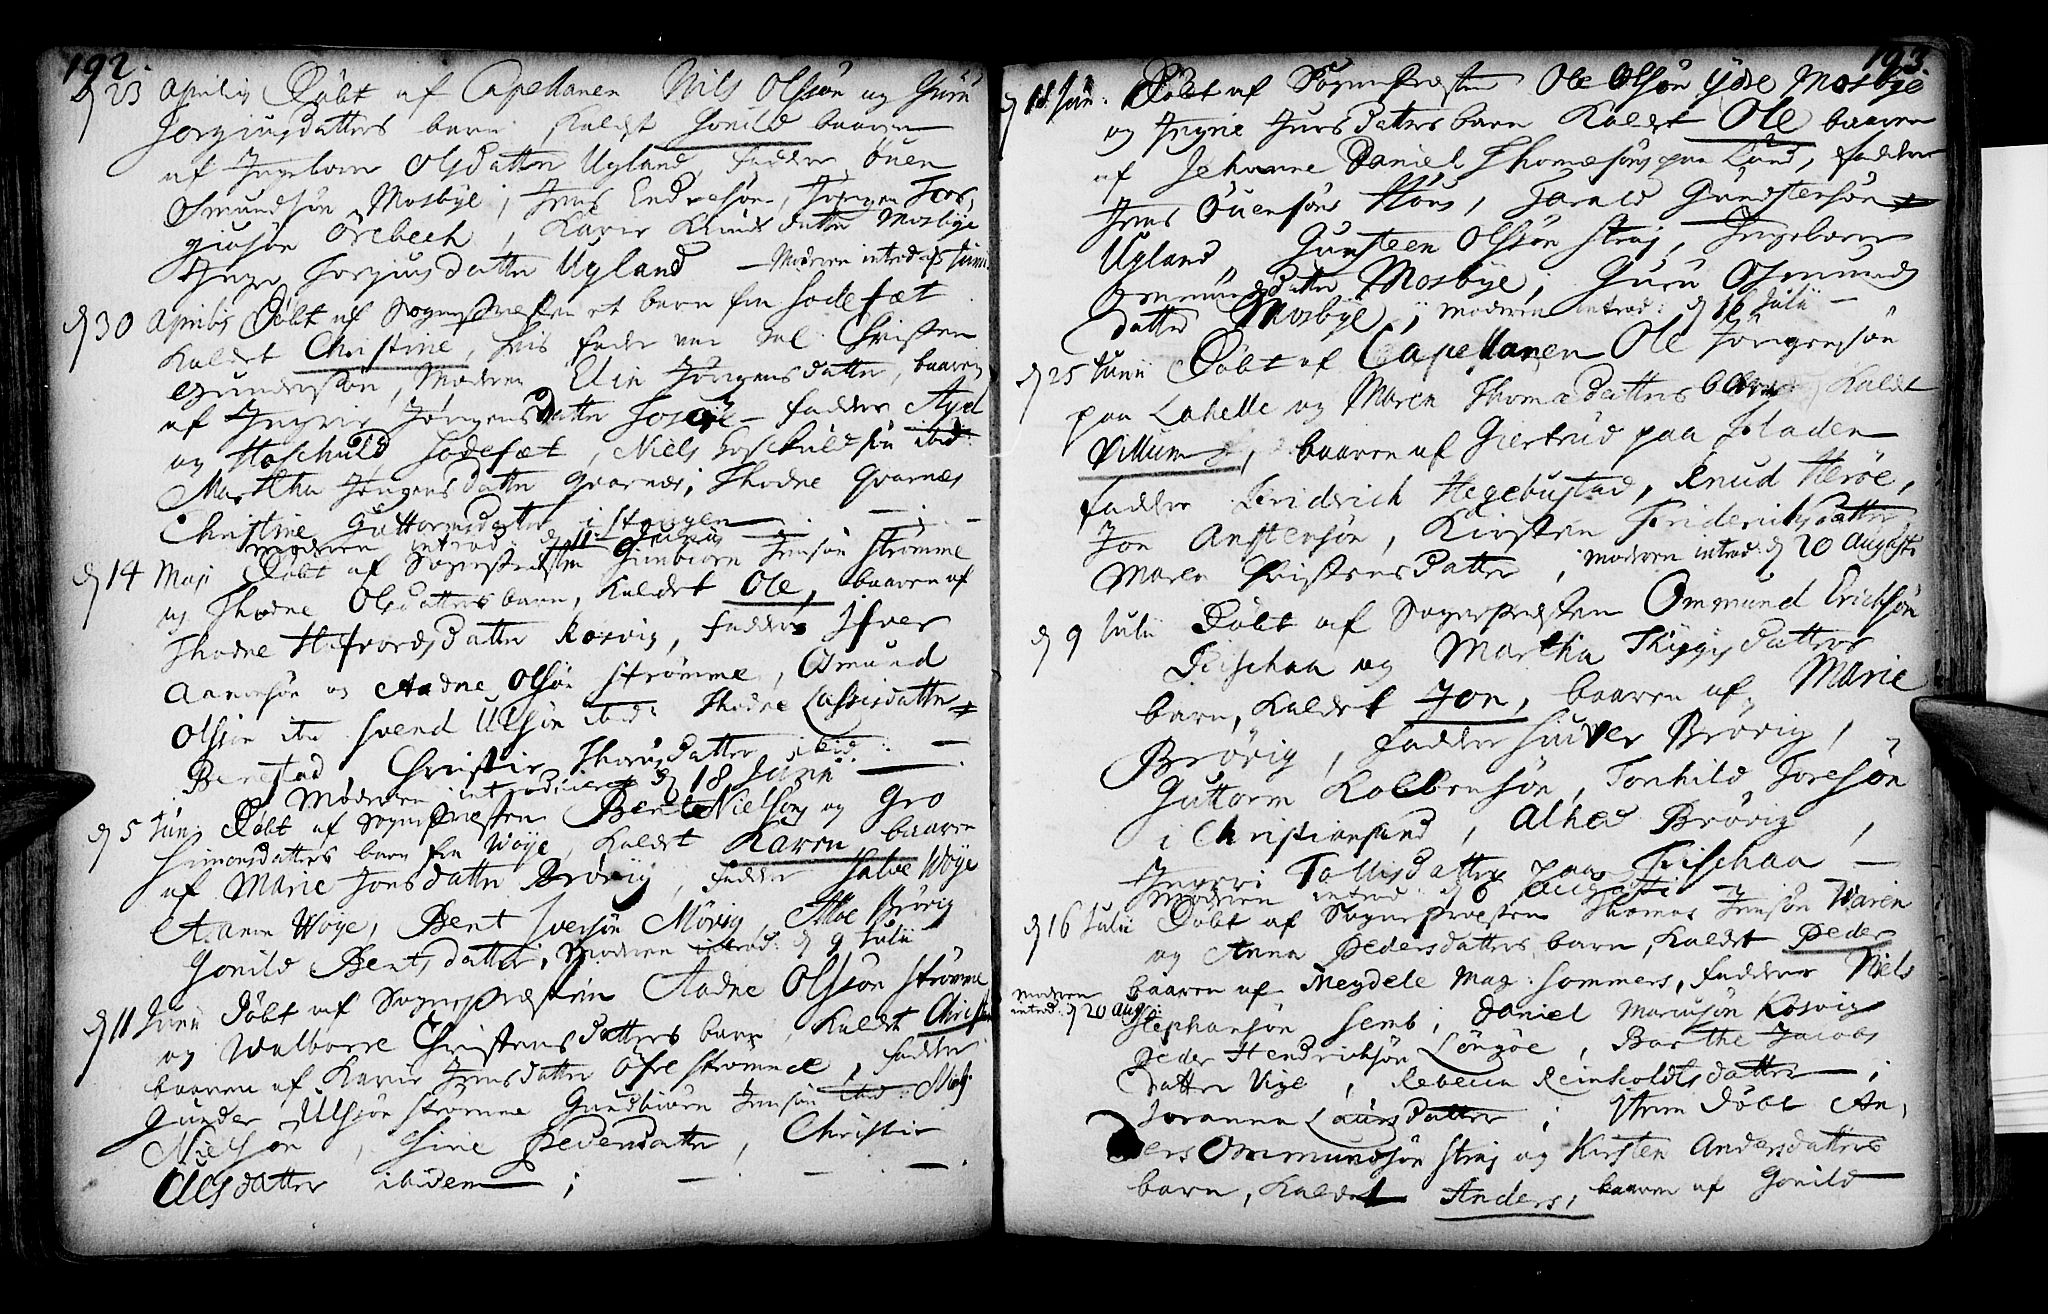 192.
d 23 Aprilis Døbt af Capellanen Nils Olssøn og Guru
Jorgiusdatters barn kaldet Gonild baaren
af Ingebor Olsdatter Ugland, fadder Ouen
Osmundsøn Mosbye, Jens Endresøn, Jørgen Tor-
giusøn Örebech, Karen Knudsdatter Mosbye
Jorgiusdatter Ugland — Moderen introd: Junii
d 30 Aprilis Døbt af Sognepræsten et barn fra Sodefæt
kaldet Christine, hvis fader var sal. Christen
Gundersøn, Moderen Elin Jørgensdatter, baaren
af Ingrie Jørgensdatter — fadder Axel
og Hoschuld Sodefæt, Niels ibid:
Martha Jørgensdatter Qvarnes, Thodne Qvarnes
Christine Guttormsdatter i
Moderen introd: d 11 Junii
d 14 Maji Døbt af Sognepræsten Gunbiørn Jensøn Strømme
og Thodne Olsdatters barn, kaldet Ole, baaren af
Thodne Hafvordsdatter Kosvig, fadder Ifver
Aanensøn og Aadne Olsøn Strømme, Osmund
Olssøn Svend Ulsøn ibid: Thodne Lassisdatter
Benestad, Christie datter ibid:
Moderen introduceret d 18 Junii
d 5 Junii Døbt af Sognepræsten Bent Nielsøns og Gro
Simonsdatters barn fra Wøye, kaldet Karen baaren
af Marie Jonsdatter Brövig, fadder Salve Wøye
Aanen Wøye, Bent Iversøn Mövig, Brövig
Gonild Bentsdatter, Moderen introd: d 9 Julii
d 11 Junii Døbt af Sognepræsten Aadne Olssøn Strømme
og Walborre Christensdatters barn, kaldet
baaren af Karen Jensdatter Öfre Strømme, fadder
Gunder Ulssøn Strømme Gundbiørn Jensøn ibid: Niels
Nielsøn, Sine Pedersdatter, Christie
Olsdatter ibidem;
193.
d 18 Jun: Døbt af Sognepræsten Ole Olsøn Ydre Mosbye
og Ingrie Jensdatters barn kaldet Ole baaren
af Jehanne Daniel Thomesøns paa Lund, fadder
Jens Ouensøns Höus, Tarald Gundstensøn
Ugland, Gunsteen Olssøn Straj, Ingeboren
Ommundsdatter Mosbye, Guru Osmunds
datter Mosbye; Moderen introd: d 16 Julii —
d 25 Junii Døbt af Capellanen Ole Jörgensøn
paa Lahelle og Maren Thomædatters barn kaldet
Villum, baaren af Giertrud paa Fladen
fadder Fridrich Hegebustad, Knud Herøe,
Jon Anstensøn, Kirsten Friderichsdatter
Maren Christensdatter; Moderen introd: d 20 Augusti
d 9 Julii Døbt af Sognepræsten Ommund Erichsøn
Fischaa og Martha datters
barn, kaldet Jon, baaren af Marie
Brövig, fadder Siuver Brövig,
Guttorm Kolbensøn, Tonhild Toresøn
i Christiansand, Alhed Brövig,
Ingeri Tollisdatter paa Fischaa —
Moderen introd: d 6 Augusti
d 16 Julii Døbt af Sognepræsten Thomas Jensøn Waren
og Anna Pedersdatters barn, kaldet Peder
baaren af Meydele Mag: Sommers, fadder Niels
Moderen
introd: d 20 Aug:
Stephansøn Semb; Daniel Mariusøn Kosvig
Peder Hendrichsøn Löngöe, Barthe Jacobs
datter Vige, Rebecca Reinholdtsdatter;
Johanna Laursdatter; item døbt An-
ders Ommundsøn Straj og Kirsten Andersdatters
barn, kaldet Anders, baaren af Gonild